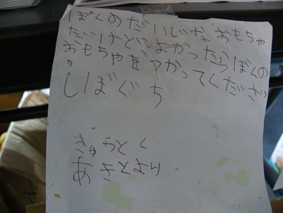 ぼくのだいじなおもちゃ
だけどよかったらぼくの
おもちゃをつかってください
。
しぼぐち
きゅかとく
あきとより